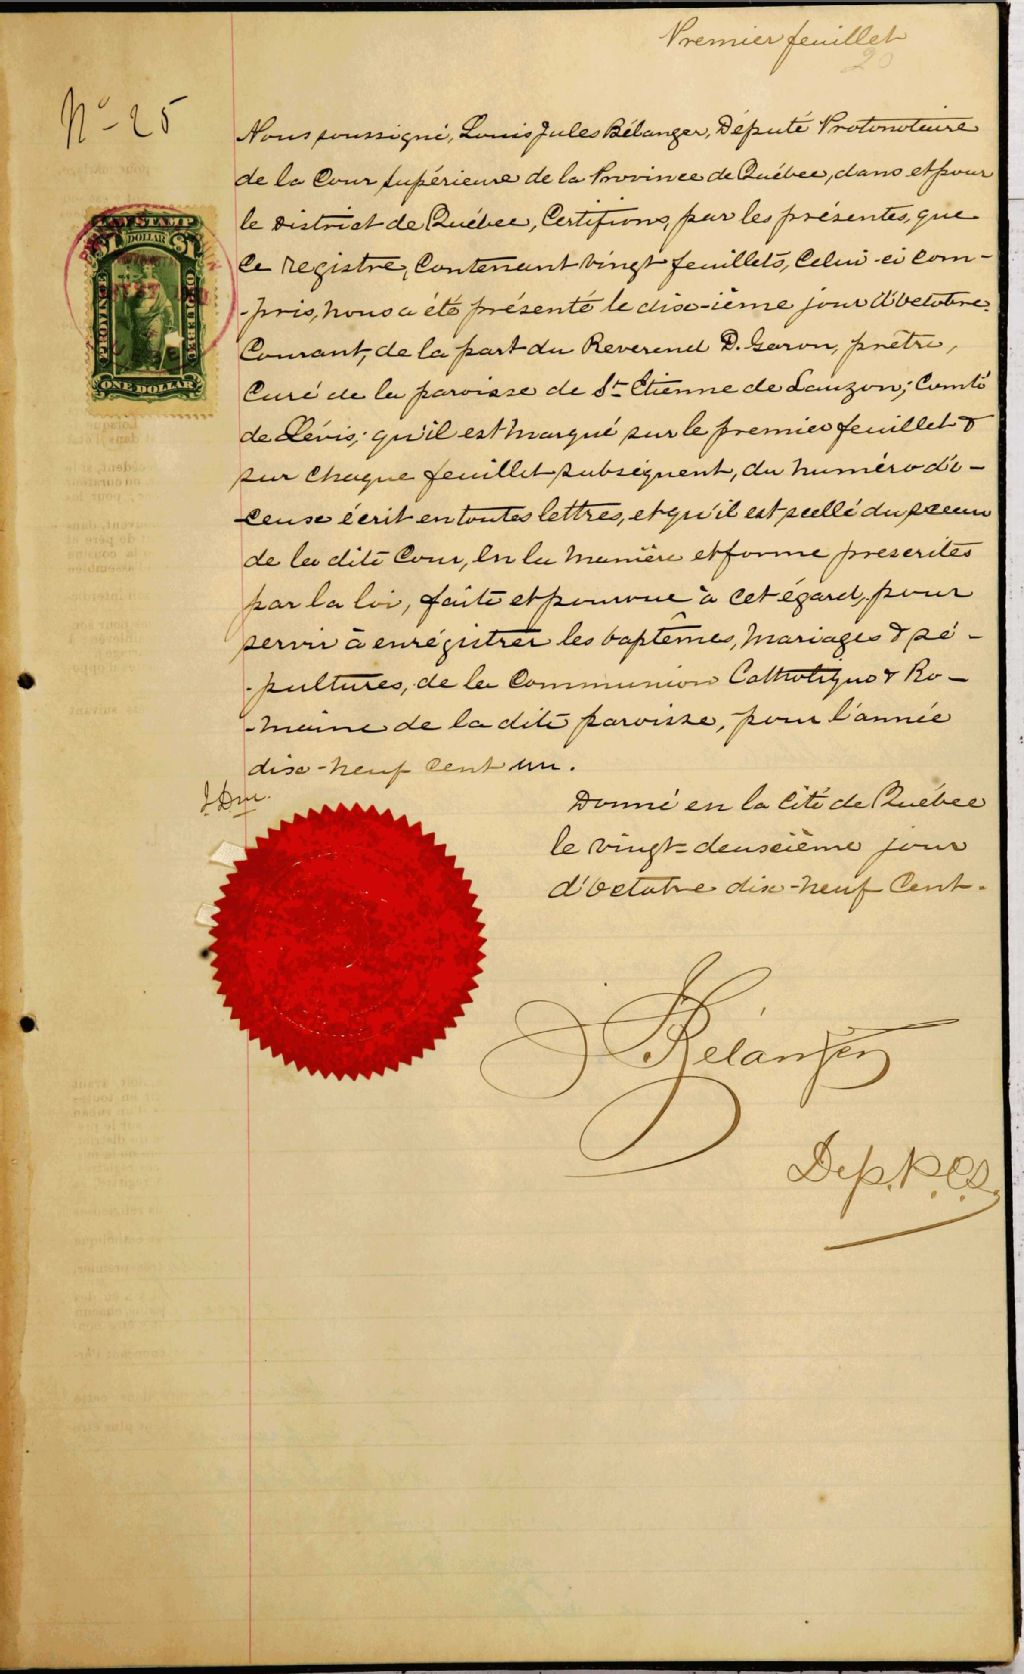 Premier feuillet
20
No - 25
Nous soussigné, Louis Jules Bélanger, Député Protonotaire
de la Cour Supérieure de la Province de Québec, dans et pour
le District de Québec, Certifions, par les présentes, que
ce registre, contenant vingt feuillets, celui-ci com-
-pris, nous a été présenté le dix-ième jour d'octobre
Courant, de la part du Reverend D. Garon, prêtre,
Curé de la paroisse de St Etienne de Lauzon, Comté
de Lévis; qu'il est marqué sur le premier feuillet &
sur chaque feuillet subséquent, du numéro d'i-
-ceux écrit en toutes lettres, et qu'il est scellé du sceau
de la dite Cour, en la manière et forme prescrites
par la loi, faite et pourvue à cet égard, pour
servir à enrégistrer les baptêmes, mariages & sé-
-pultures, de la Communion Catholique & Ro-
-maine de la dite paroisse, pour l'année
dix-neuf cent un.
Donné en la Cité de Québec
le vingt-deuxième jour
d'octobre dix-neuf cent.
Bélanger
Dep. P. C. S.
STAMP
DOLLAR
PROVINCE
DE QUEBEC
ONE DOLLAR